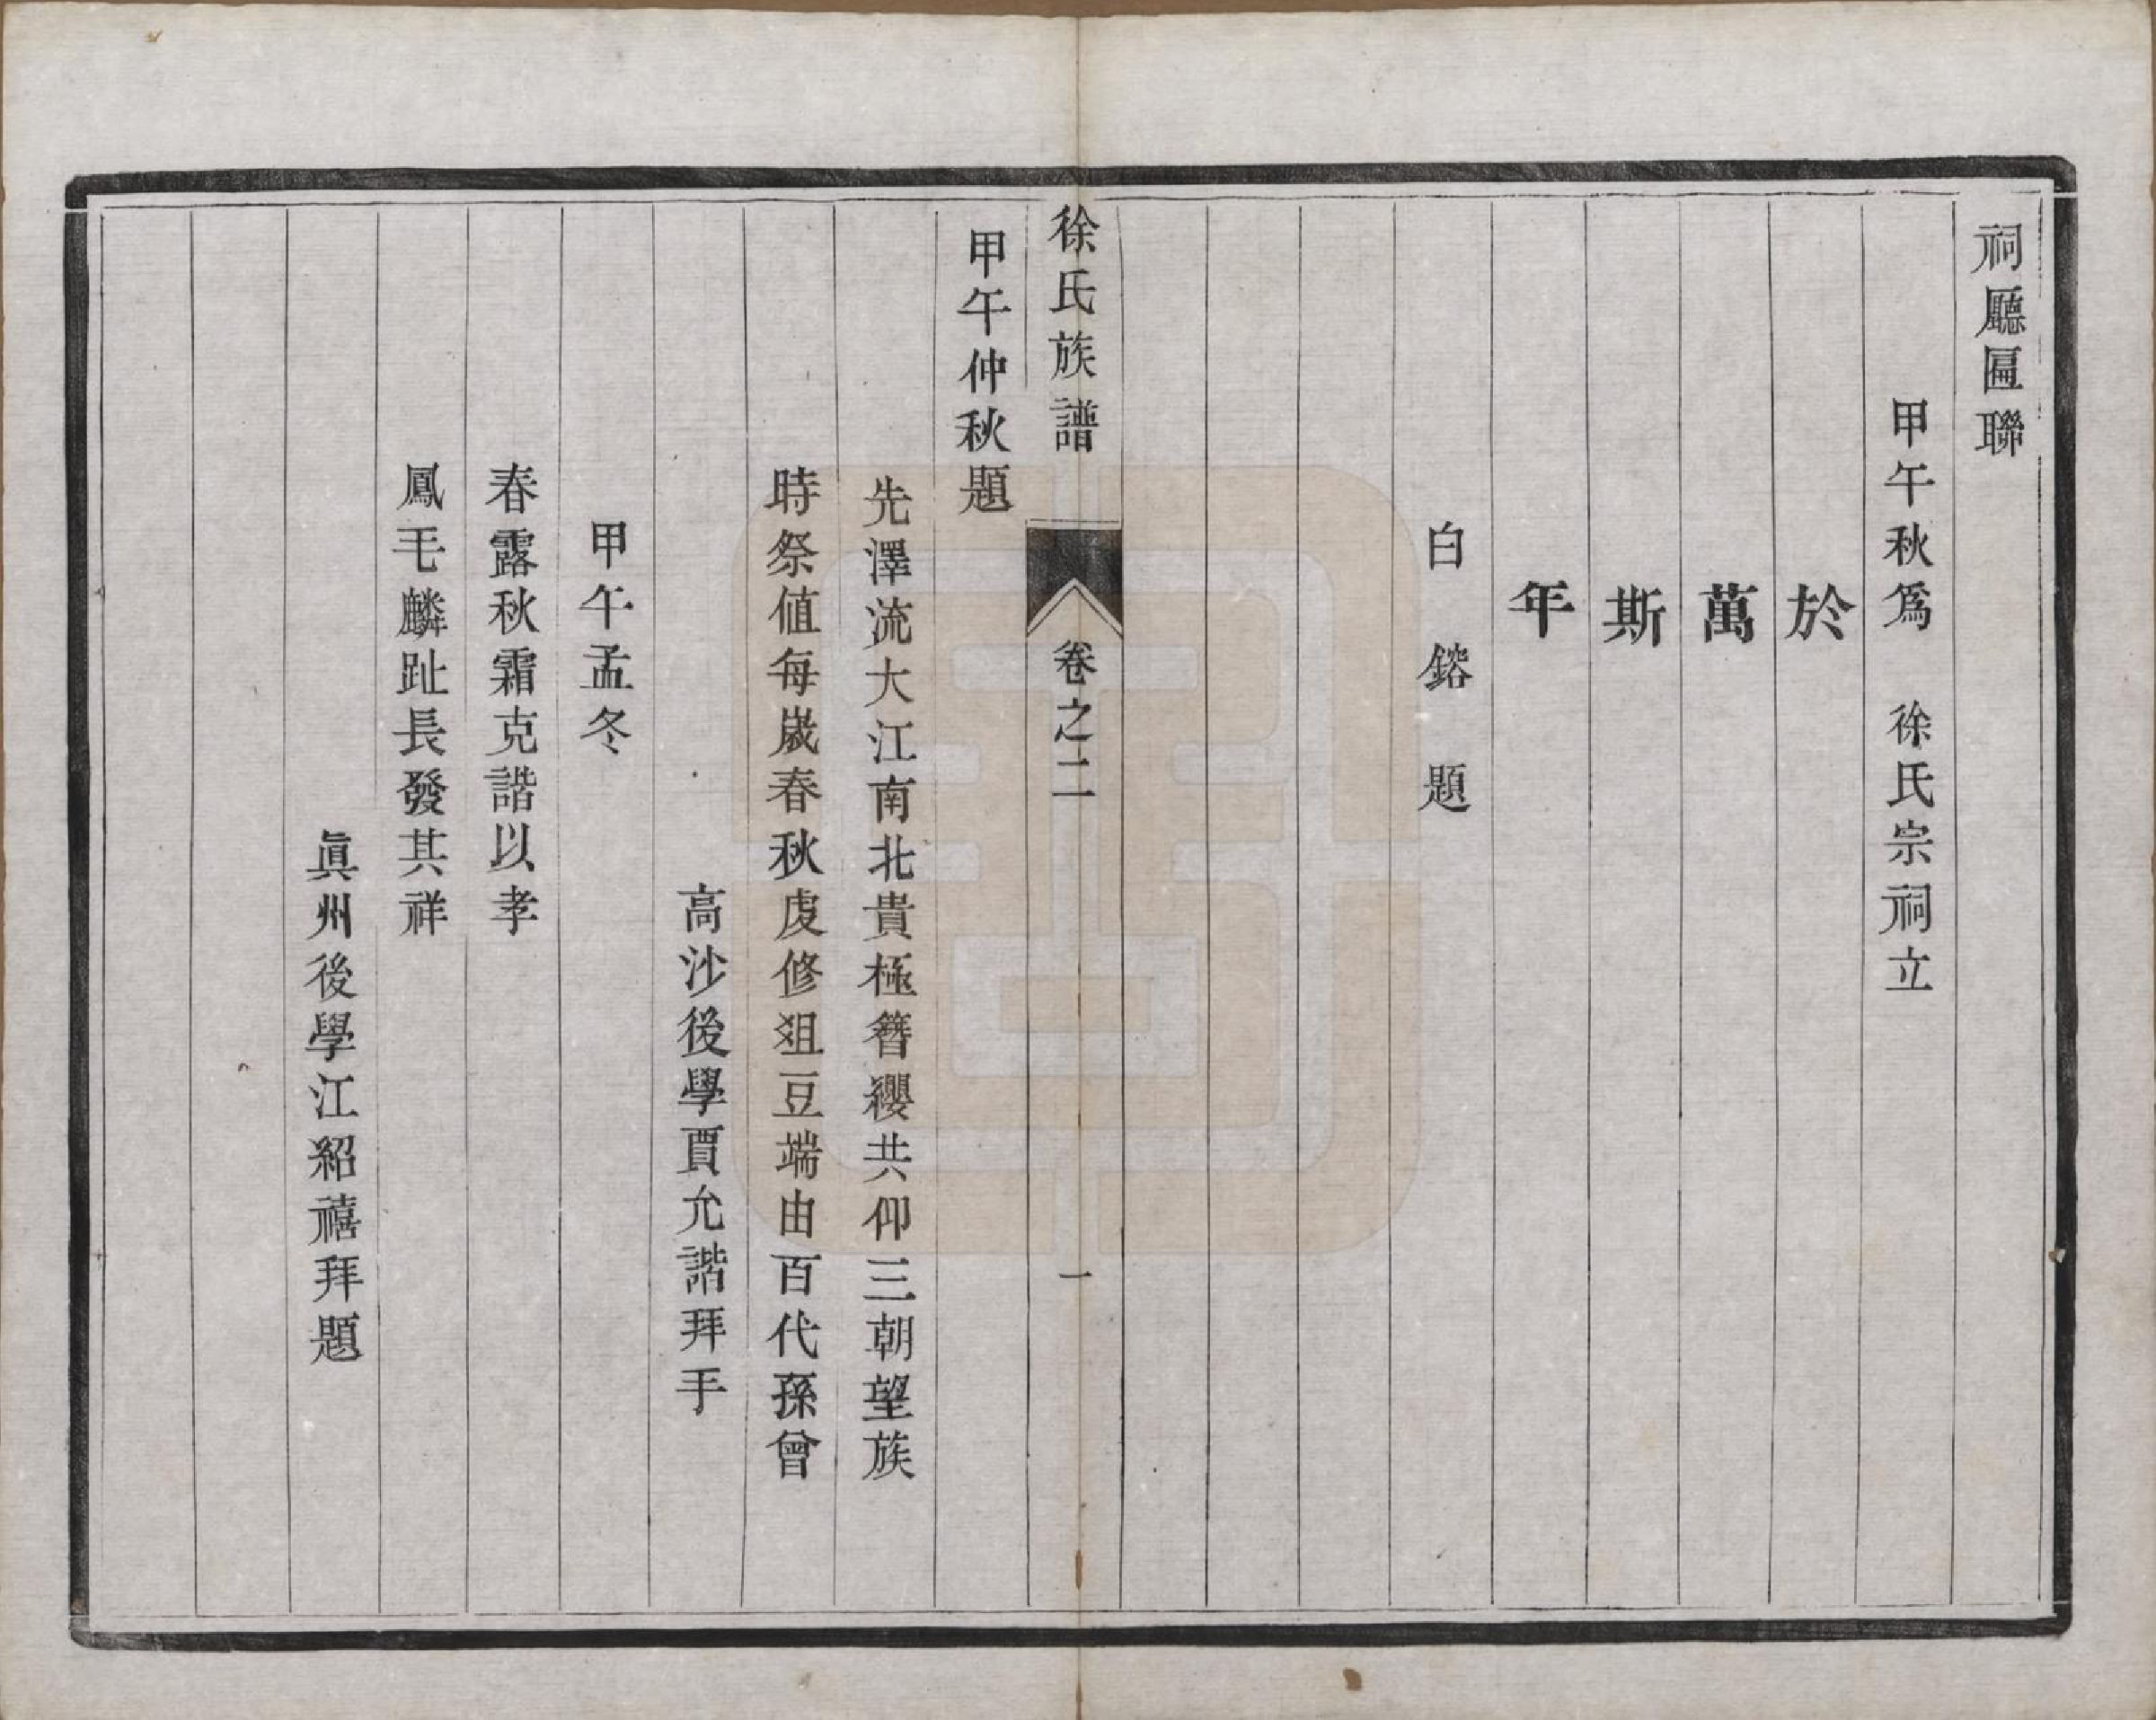 祠廳匾聯
甲午秋爲　徐氏宗祠立
於
萬
斯
年
白鎔題
徐氏族譜　卷之二　一
甲午仲秋題
先澤流大江南北貴極簪纓共仰三朝望族
時祭值每歲春秋虔修俎豆端由百代孫曾
高沙後學賈允諧拜手
甲午孟冬
春露秋霜克諧以孝
鳳毛麟趾長發其祥
眞州後學江紹禧拜題